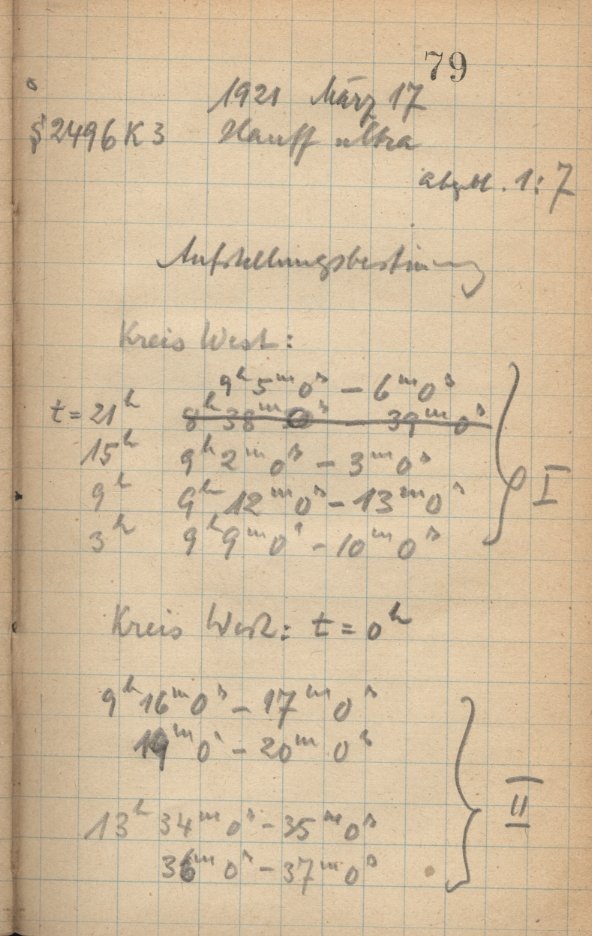 79
1921 März 17
§2496 K 3 Hauff ultra
abgebl. 1:7
Aufstellungsbestimmung
Kreis West:
9h 5m 0s – 6m 0s
t = 21h 8h 38m 0s 39m 0s
15h 9h 2m 0s – 3m 0s
9h 9h 12m 0s – 13m 0s
3h 9h 9m 0s – 10m 0s
I
Kreis West: t = 0h
9h 16m 0s – 17m 0s
19m 0s – 20m 0s
13h 34m 0s – 35m 0s
36m 0s – 37m 0s
II